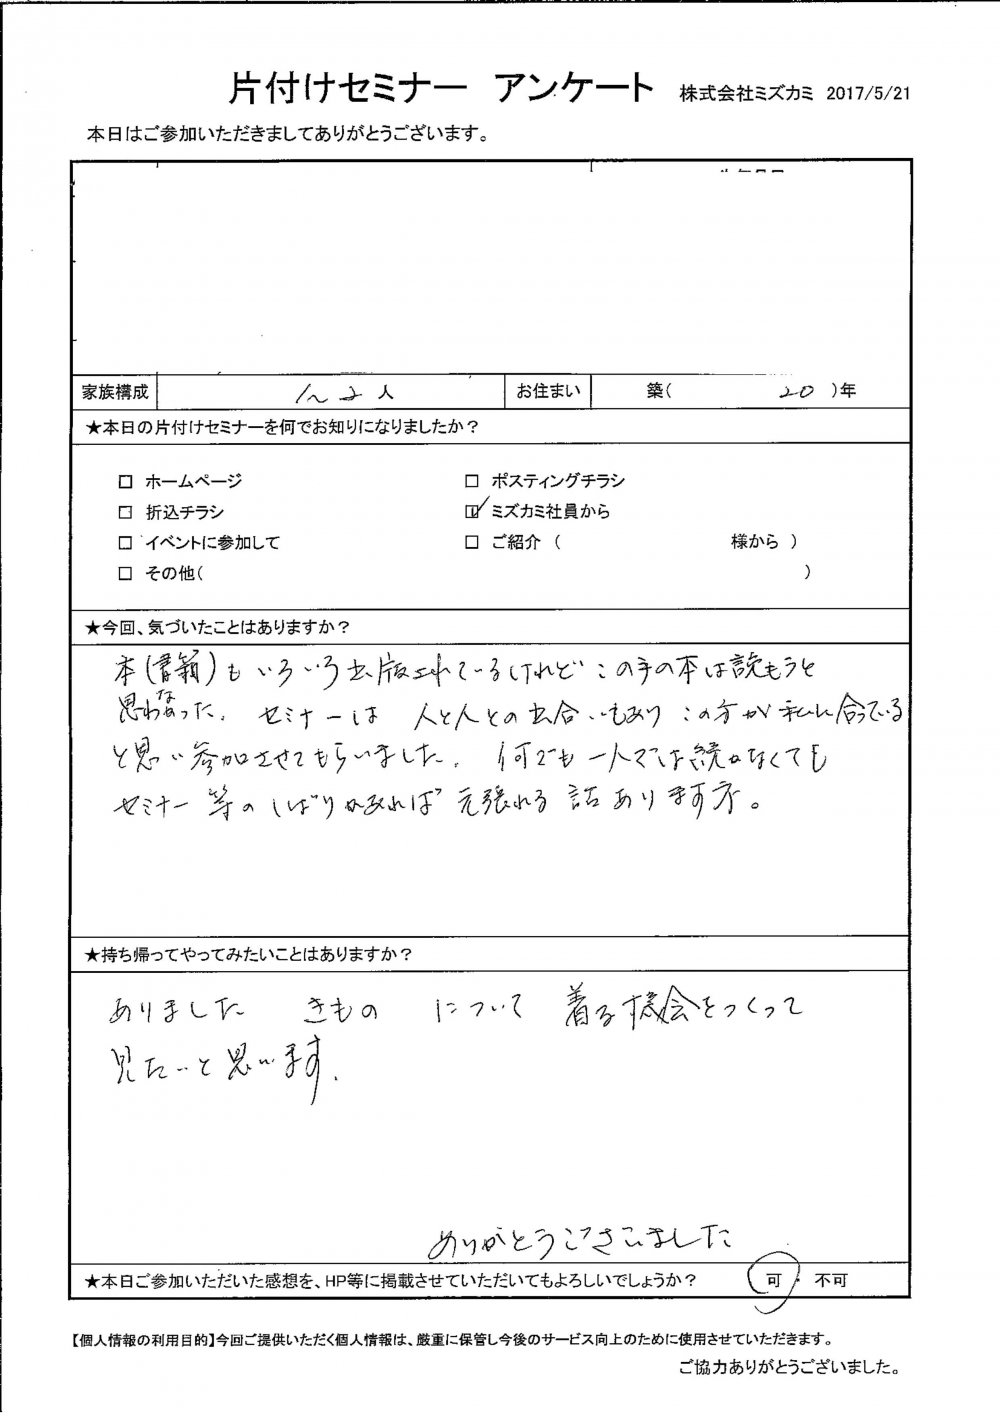 片付けセミナー アンケート 株式会社ミズカミ 2017/5/21
本日はご参加いただきましてありがとうございます。
家族構成 1~2人 お住まい 築( 20 )年
★本日の片付けセミナーを何でお知りになりましたか？
□ ホームページ □ ポスティングチラシ
□ 折込チラシ ☑ ミズカミ社員から
□ イベントに参加して □ ご紹介 ( 様から )
□ その他( )
★今回、気づいたことはありますか？
本(書籍)もいろいろ出版されているけれどこの手の本は読もうと
思わなかった。セミナーは 人と人との出合いもあり この方が私に合っている
と思い参加させてもらいました。何でも一人では続かなくても
セミナー等のしばりがあれば元張れる 話あります
★持ち帰ってやってみたいことはありますか？
ありました きもの について 着る機会をつくって
見たいと思います。
ありがとうございました
★本日ご参加いただいた感想を、HP等に掲載させていただいてもよろしいでしょうか？ 可 ・ 不可
【個人情報の利用目的】今回ご提供いただく個人情報は、厳重に保管し今後のサービス向上のために使用させていただきます。
ご協力ありがとうございました。